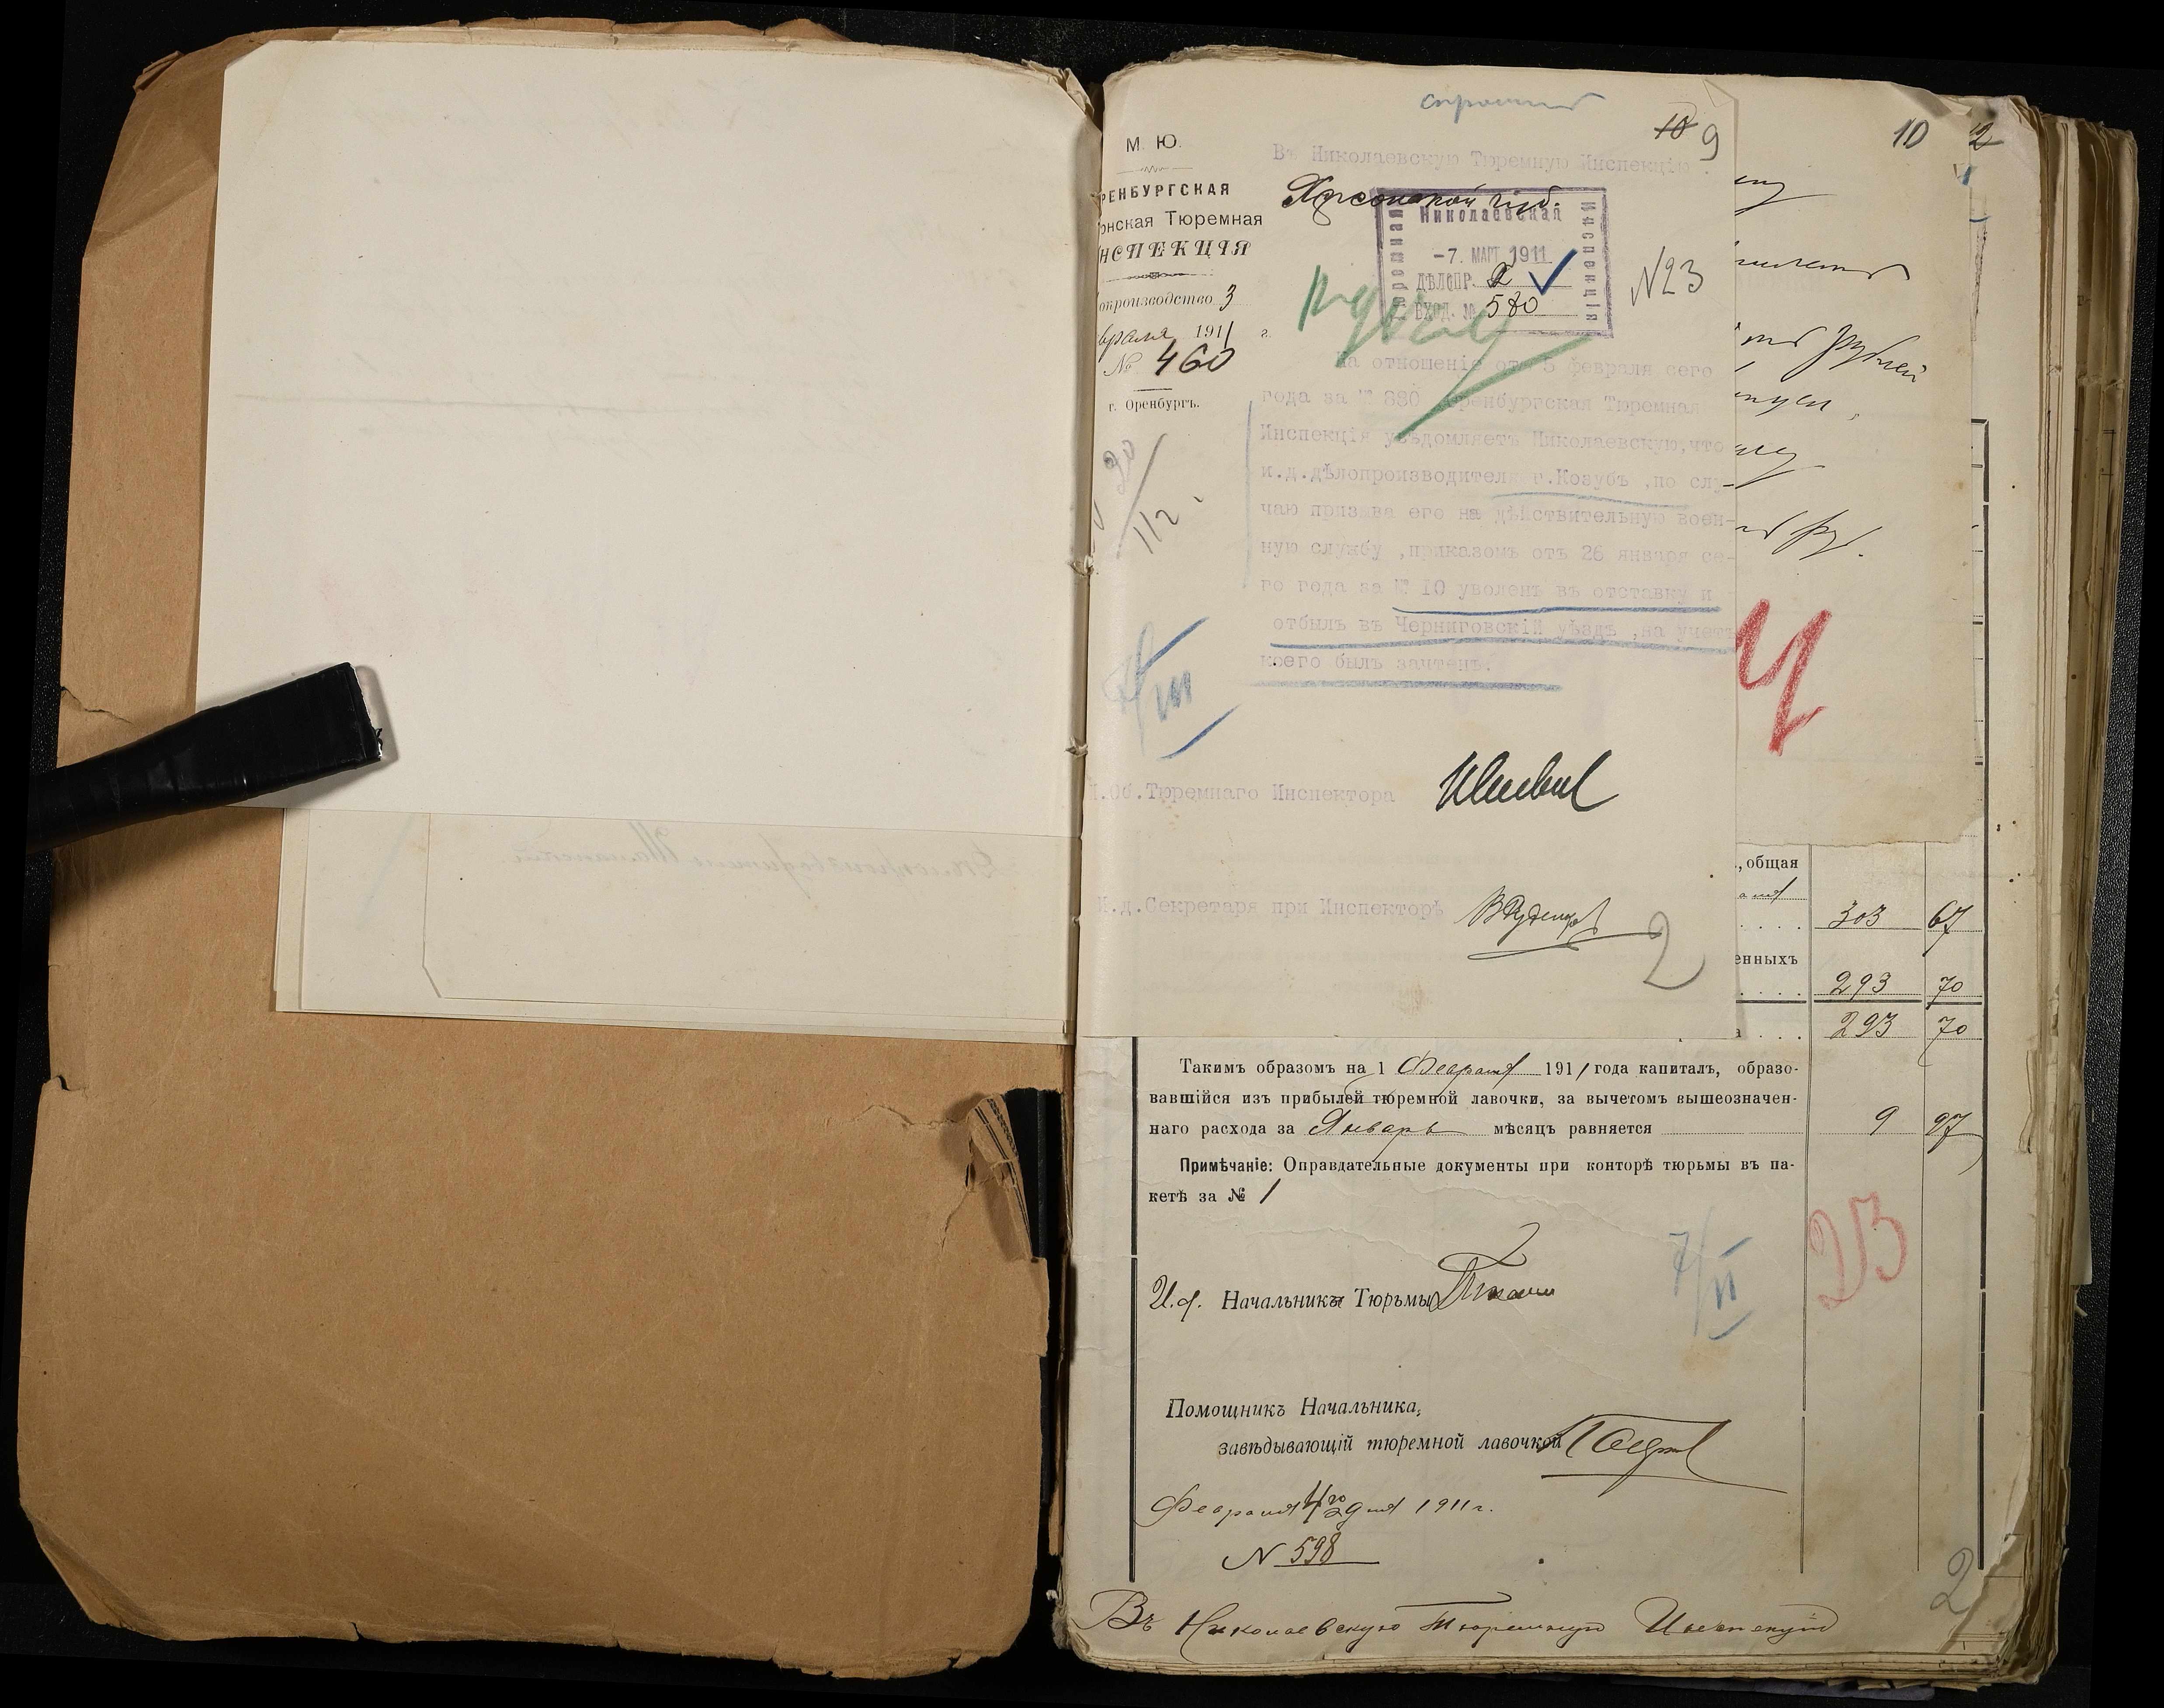 10 9
М. Ю.
РЕНБУРГСКАЯ
онская Тюремная
НСПЕКЦІЯ
опроизводство 3
враля 1911 г.
№ 460
г. Оренбургъ.
Въ Николаевскую Тюремную Инспекцію
Херсонской губ.
Николаевская
Тюремная
Инспекція
-7. МАРТ 1911
ДѢЛОПР. 2
ВХОД. № 580
№23
На отношеніе отъ 5 февраля сего
года за № 880 Оренбургская Тюремная
Инспекція увѣдомляетъ Николаевскую,что
и.д.дѣлопроизводителя г.Козубъ ,по слу-
чаю призыва его на дѣйствительную воен-
ную службу ,приказомъ отъ 26 января се-
го года за № 10 уволенъ въ отставку и
отбылъ въ Черниговскій уѣздъ ,на учетъ
коего былъ зачтенъ.
7/III
И.Об.Тюремнаго Инспектора
И.д.Секретаря при Инспекторѣ
2
10 2
рублей
руб.
,общая
303 67
енныхъ
293 70
293 70
Такимъ образомъ на 1 Февраля 1911 года капиталъ, образо-
вавшійся изъ прибылей тюремной лавочки, за вычетомъ вышеозначен-
наго расхода за Январь мѣсяцъ равняется 9 97
Примѣчаніе: Оправдательные документы при конторѣ тюрьмы въ па-
кетѣ за № 1
7/II
И.д. Начальника Тюрьмы
Помощникъ Начальника,
завѣдывающій тюремной лавочкой
Февраля 4го дня 1911 г.
N 598
2
Въ Николаевскую Тюремную Инспекцію